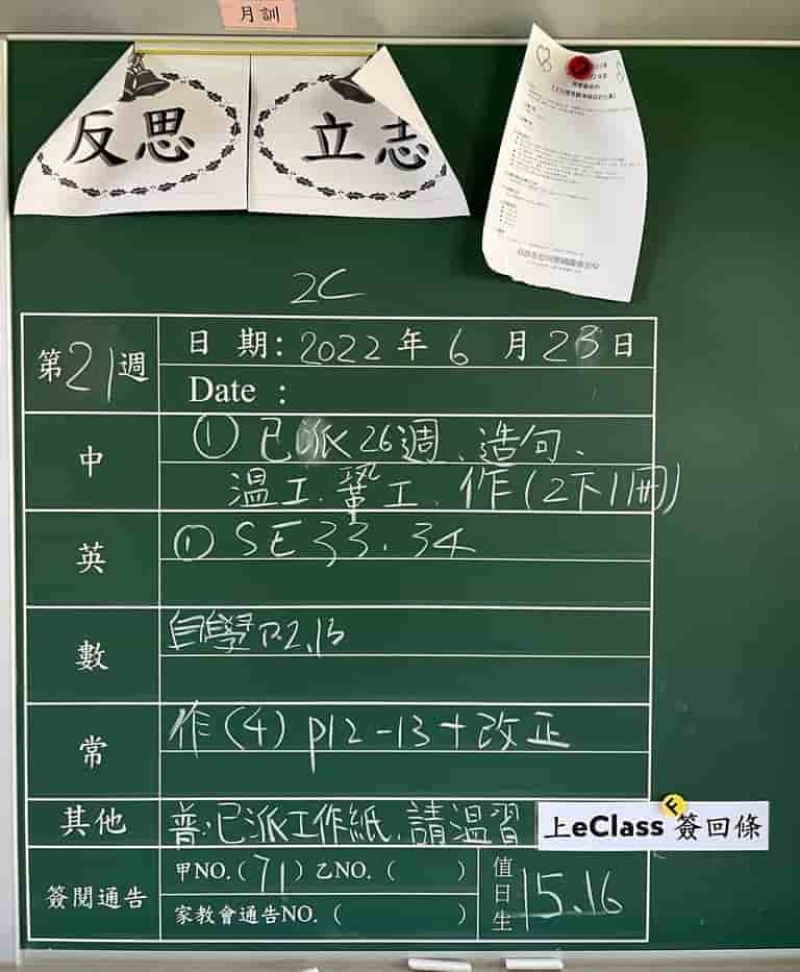 月訓
反思 立志
2C
第21週
日 期: 2022 年 6 月 23 日
Date :
中 ① 已派26週、造句、
温工、鞏工、作(2下1冊)
英 ① SE 33, 34
數 自學 P.2, 13
常 作(4) P12-13 + 改正
其他 普:已派工作紙, 請温習 上eClass簽回條
F
簽閱通告 甲NO.( 71 ) 乙NO. ( )
家教會通告NO. ( )
值日生 15, 16